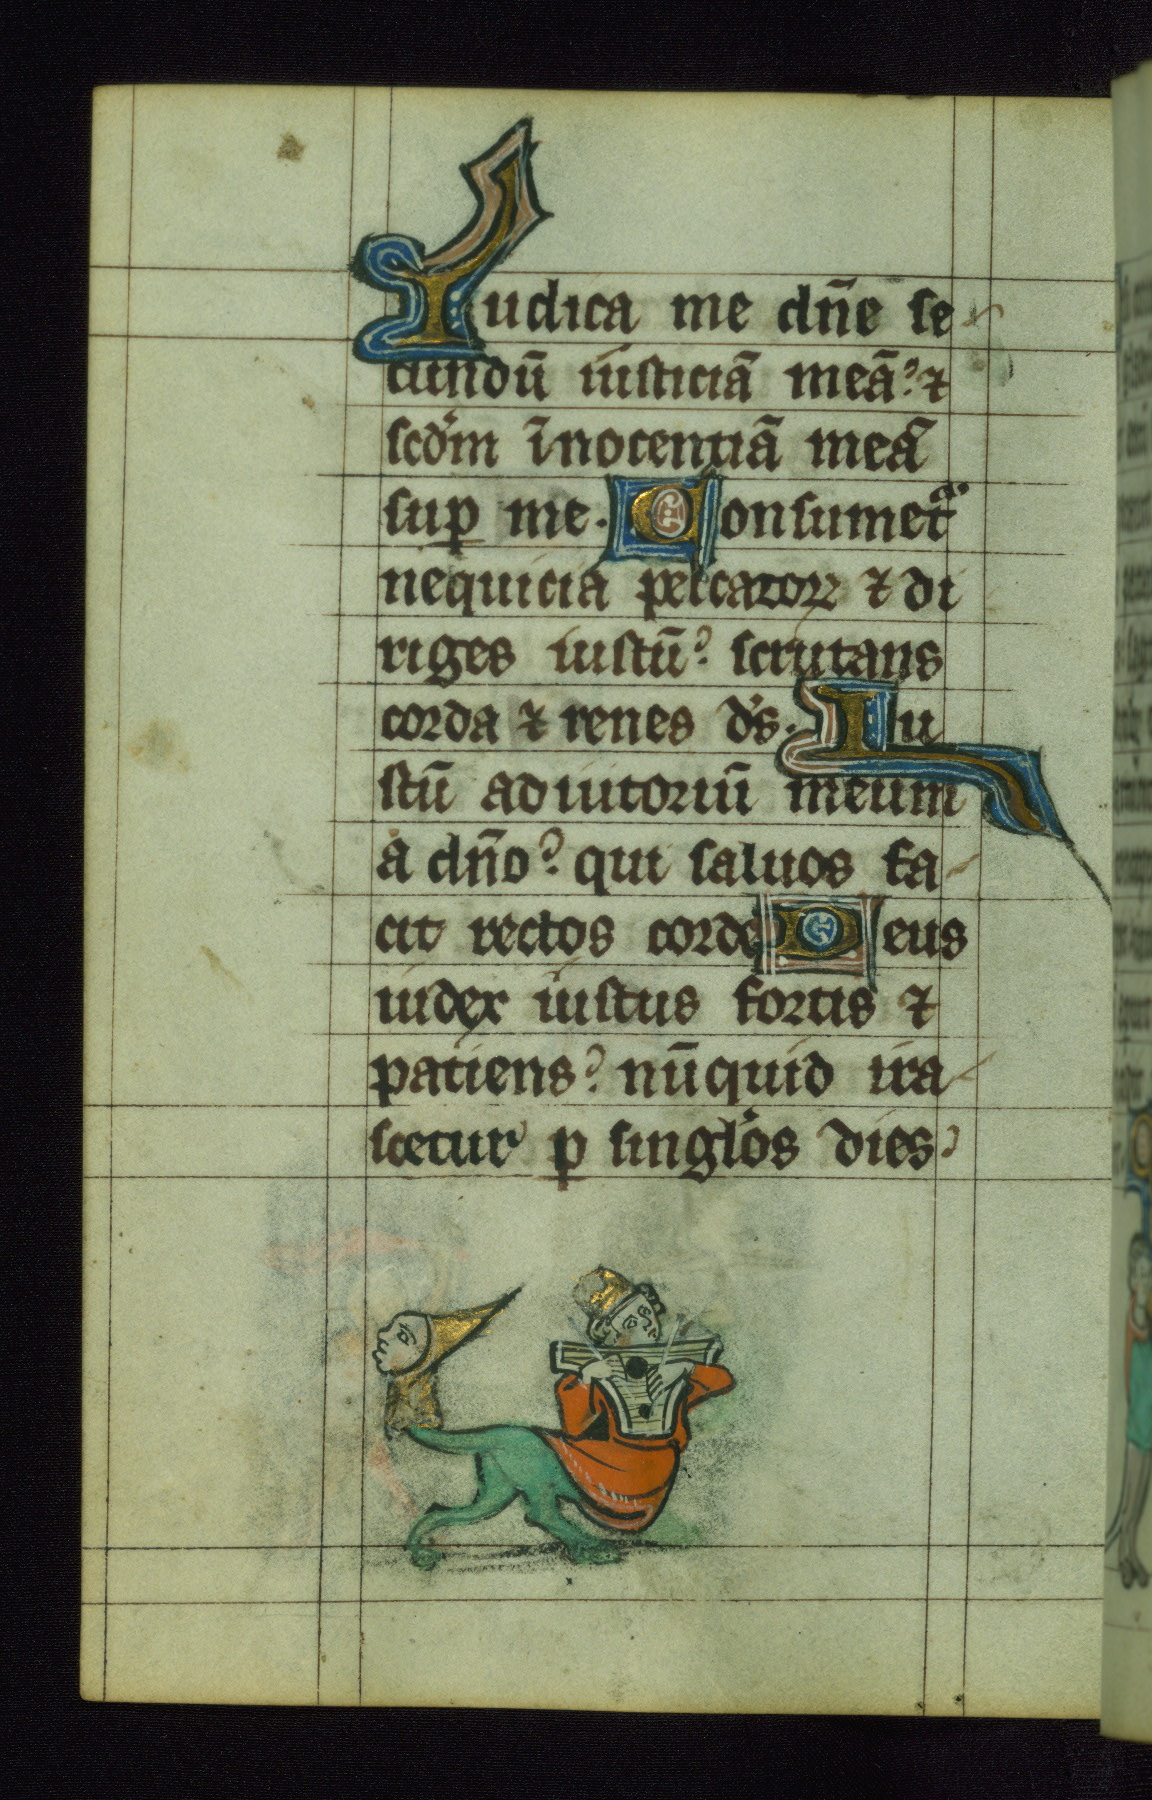 Iudica me dn̄e se
cundū iusticiā meā? ⁊
scd'm īnocentiā meā
suꝑ me. Consumetᵃ
nequicia peccatoꝝ ⁊ di
riges iustū? scrutans
corda ⁊ renes d's. Iu
stū adiutoriū meum
a dn̄o? qui saluos fa
cit rectos corde Deus
iudex iustus fortis ⁊
patiens? nūquid ira
scetur ꝑ singl'os dies?